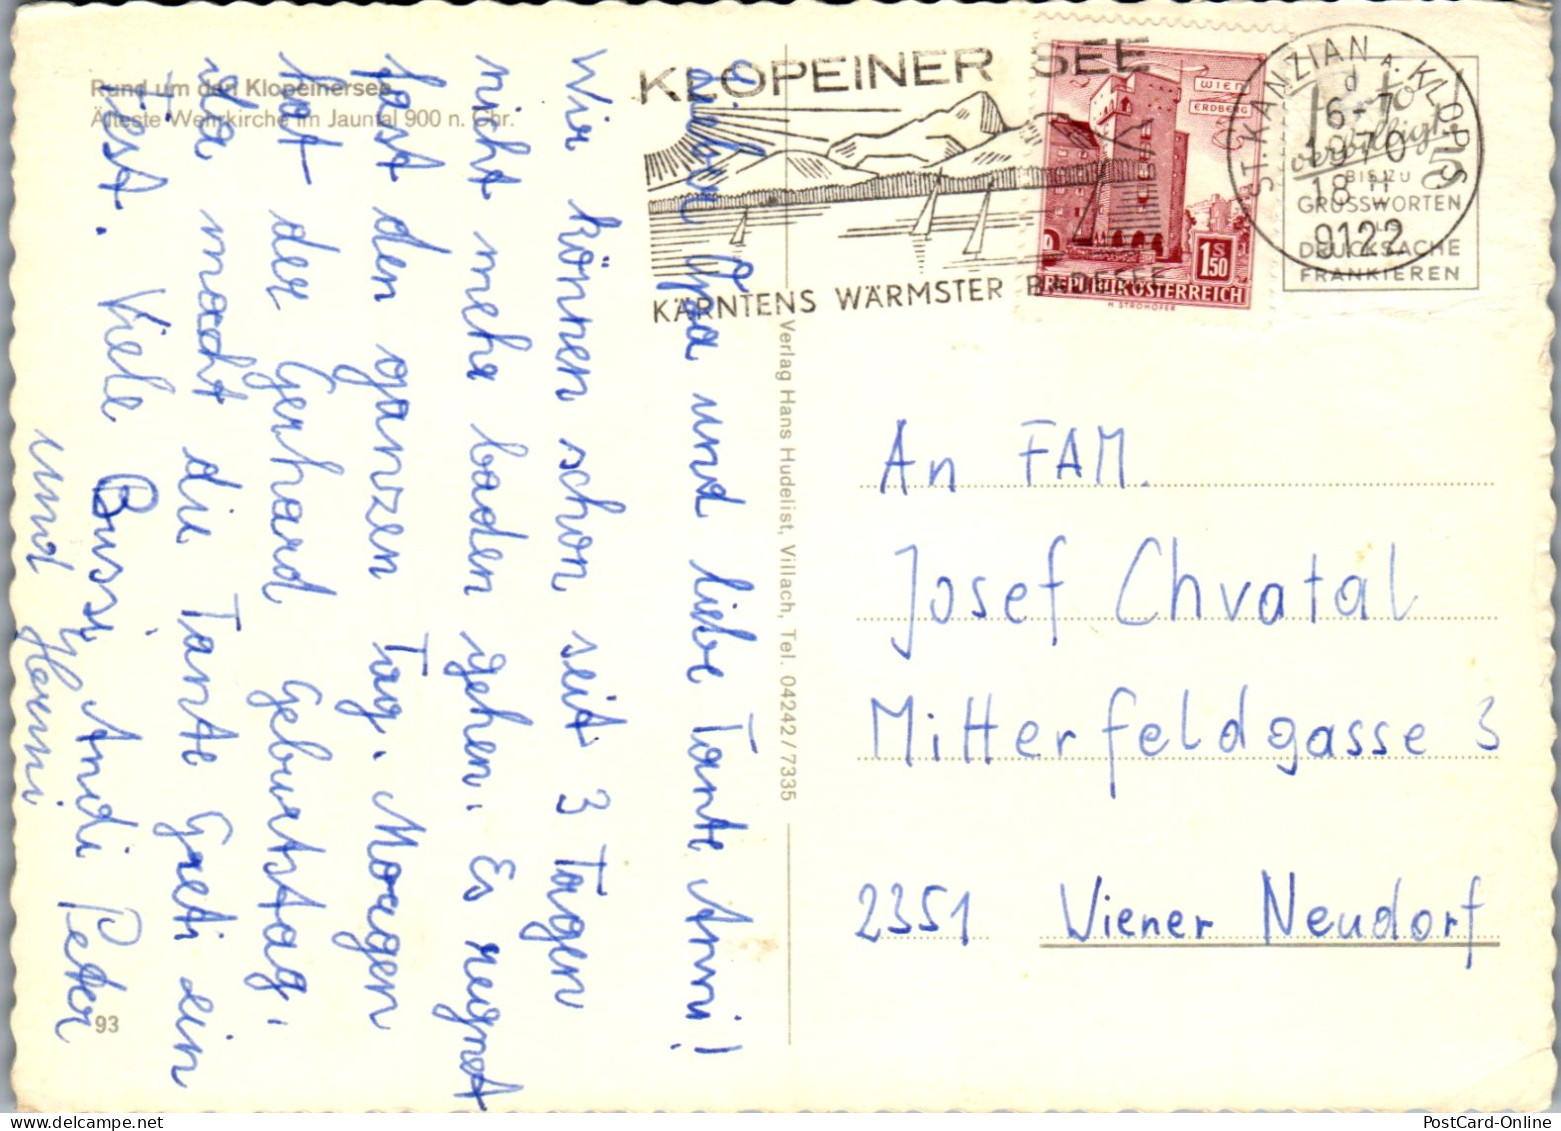 Rund um den Klopeinersee
Älteste Wehrkirche im Jauntal 900 n. Chr.
Lieber Opa und liebe Tante Anni!
Wir können schon seit 3 Tagen
nicht mehr baden gehen. Es regnet
fast den ganzen Tag. Morgen
hat der Gerhard Geburtstag.
Da macht die Tante Greti ein
Fest. Viele Bussi, Andi Peter
und Hermi
93
Verlag Hans Hudelist, Villach, Tel. 04242/7335
KLOPEINER SEE
KÄRNTENS WÄRMSTER BADESEE
WIEN
ERDBERG
1S50
REPUBLIK ÖSTERREICH
H. STROHOFER
ST. KANZIAN A. KLOPS
d
6-7
1970
18
9122
Porto
verbilligt
BIS ZU 5
GRUSSWORTEN
ALS
DRUCKSACHE
FRANKIEREN
An FAM.
Josef Chvatal
Mitterfeldgasse 3
2351 Wiener Neudorf
PostCard-Online